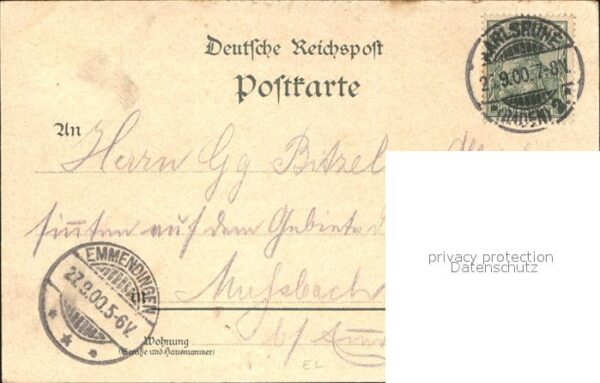 Deutsche Reichspost
KARLSRUHE
27.9.00.7-8N.
(BADEN) 2.
Postkarte
An
Herrn Gg Bitzel
auf dem Gebiete d
privacy protection
Datenschutz
EMMENDINGEN
27.9.00.5-6V.
in
Mußbach
Wohnung
(Straße und Hausnummer)
b/
EL